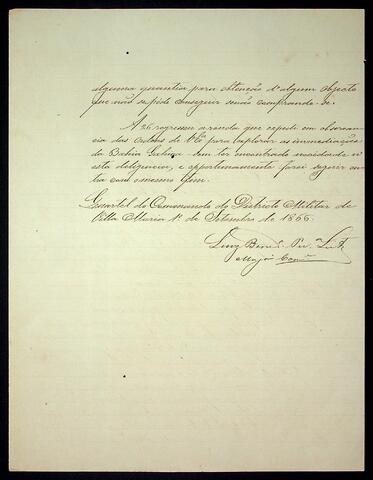 alguma quantia para obtenção d'algum objecto
que não se póde conseguir senão comprando-se.
A 26 regressou a ronda que expedi em observan
cia das Ordens de V. Ex.ª para explorar as immediações
da Bahia Gahiva sem ter encontrado novidade n'
esta deligencia, e opportunamente farei seguir ou
tra com o mesmo fim.
Quartel do Commando do Districto Militar de
Villa Maria 1º de Setembro de 1866.
Luiz Bened.
Major Com.